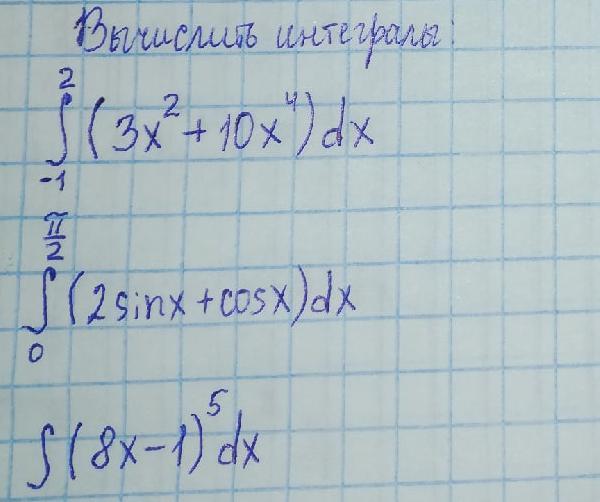 Вычислить интегралы:
∫₋₁² (3x² + 10x⁴) dx
∫₀^(π/2) (2sinx + cosx) dx
∫ (8x - 1)⁵ dx